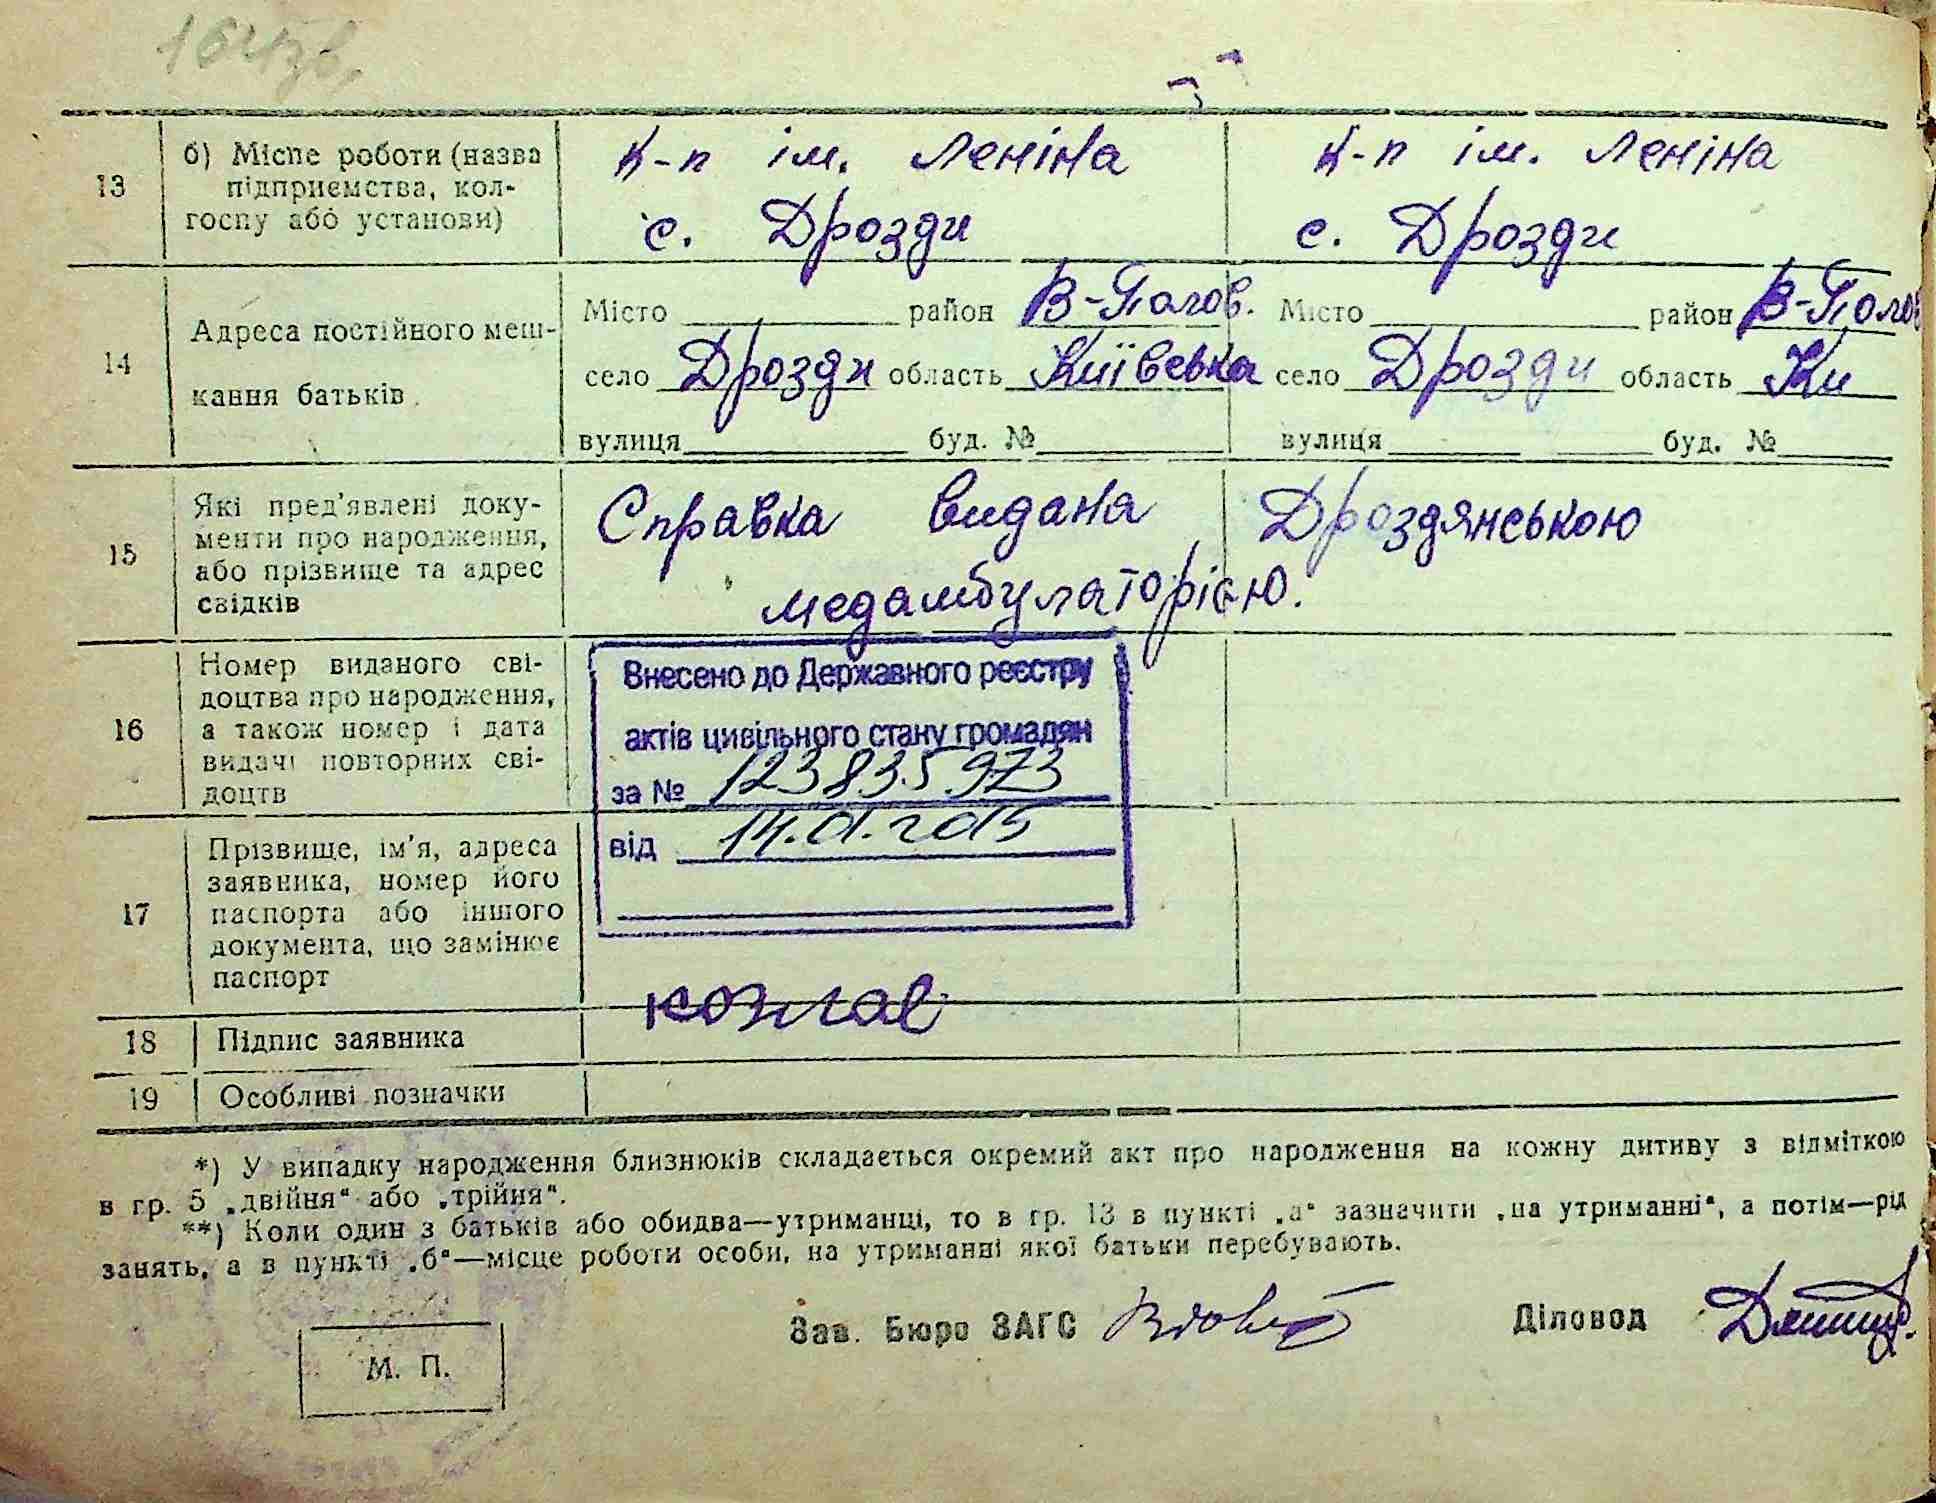 16 чзв.
13
б) Місце роботи (назва
підприємства, кол-
госпу або установи)
к-п ім. Леніна
с. Дрозди
к-п ім. Леніна
с. Дрозди
14
Адреса постійного меш-
кання батьків
Місто район В-Полов.
село Дрозди область Київська
вулиця буд. №
Місто район В-Полов
село Дрозди область Ки
вулиця буд. №
15
Які пред'явлені доку-
менти про народження,
або прізвище та адрес
свідків
Справка видана Дроздянською
медамбулаторією.
16
Номер виданого сві-
доцтва про народження,
а також номер і дата
видачі повторних сві-
доцтв
Внесено до Державного реєстру
актів цивільного стану громадян
за № 123835973
від 14.01.2015
17
Прізвище, ім'я, адреса
заявника, номер його
паспорта або іншого
документа, що замінює
паспорт
18
Підпис заявника
19
Особливі позначки
*) У випадку народження близнюків складається окремий акт про народження на кожну дитиву з відміткою
в гр. 5 „двійня“ або „трійня“.
**) Коли один з батьків або обидва—утриманці, то в гр. 13 в пункті „а“ зазначити „на утриманні“, а потім—рід
занять, а в пункті „б“—місце роботи особи, на утриманні якої батьки перебувають.
Зав. Бюро ЗАГС
Діловод
М. П.